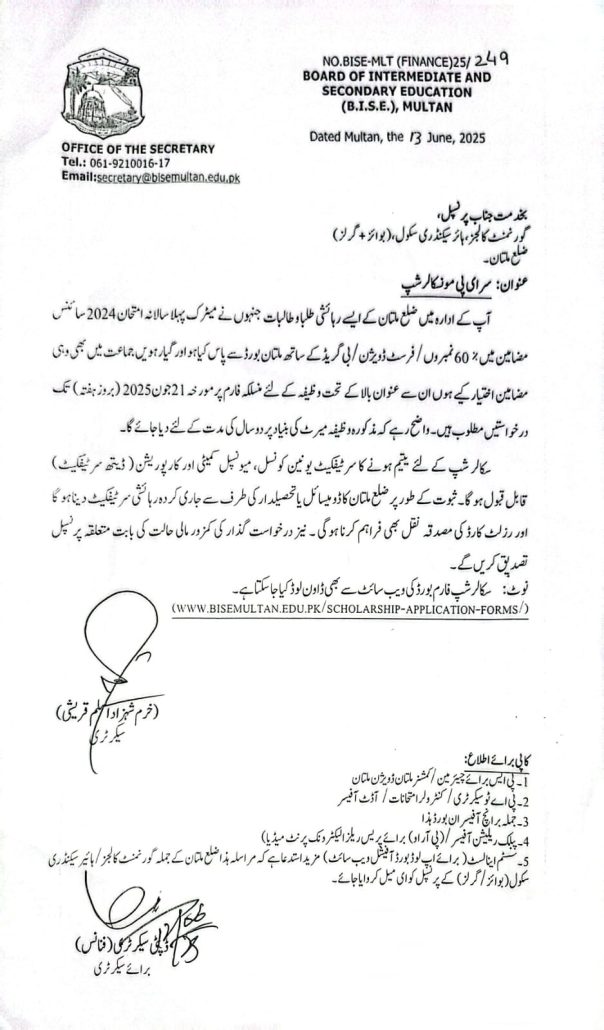 NO.BISE-MLT (FINANCE)25/249
BOARD OF INTERMEDIATE AND
SECONDARY EDUCATION
(B.I.S.E.), MULTAN
Dated Multan, the 13 June, 2025
OFFICE OF THE SECRETARY
Tel.: 061-9210016-17
Email:secretary@bisemultan.edu.pk
بخدمت جناب پرنسپل،
گورنمنٹ کالجز، ہائر سیکنڈری سکول، (بوائز + گرلز)
ضلع ملتان۔
عنوان: سر ای پی مونسکالرشپ
آپ کے ادارہ میں ضلع ملتان کے ایسے رہائشی طلبا و طالبات جنہوں نے میٹرک پہلا سالانہ امتحان 2024 سائنس
مضامین میں 60% نمبروں / فرسٹ ڈویژن / بی گریڈ کے ساتھ ملتان بورڈ سے پاس کیا ہو اور گیارہویں جماعت میں بھی وہی
مضامین اختیار کیے ہوں ان سے عنوان بالا کے تحت وظیفہ کے لئے منسلکہ فارم پر مورخہ 21 جون 2025 (بروز ہفتہ) تک
درخواستیں مطلوب ہیں۔ واضح رہے کہ مذکورہ وظیفہ میرٹ کی بنیاد پر دو سال کی مدت کے لئے دیا جائے گا۔
سکالرشپ کے لئے یتیم ہونے کا سرٹیفکیٹ یونین کونسل، میونسپل کمیٹی اور کارپوریشن (ڈیتھ سرٹیفکیٹ)
قابل قبول ہو گا۔ ثبوت کے طور پر ضلع ملتان کا ڈومیسائل یا تحصیلدار کی طرف سے جاری کردہ رہائشی سرٹیفکیٹ دینا ہو گا
اور رزلٹ کارڈ کی مصدقہ نقل بھی فراہم کرنا ہو گی۔ نیز درخواست گذار کی کمزور مالی حالت کی بابت متعلقہ پرنسپل
تصدیق کریں گے۔
نوٹ: سکالرشپ فارم بورڈ کی ویب سائٹ سے بھی ڈاون لوڈ کیا جا سکتا ہے۔
(WWW.BISEMULTAN.EDU.PK/SCHOLARSHIP-APPLICATION-FORMS/)
(خرم شہزاد اسلم قریشی)
سیکرٹری
کاپی برائے اطلاع:
1۔ پی ایس برائے چیئرمین / کمشنر ملتان ڈویژن ملتان
2۔ پی اے ٹو سیکرٹری / کنٹرولر امتحانات / آڈٹ آفیسر
3۔ جملہ برانچ آفیسران بورڈ ہذا
4۔ پبلک ریلیشن آفیسر / (پی آر او) برائے پریس ریلیز الیکٹرونک پرنٹ میڈیا)
5۔ سسٹم اینالسٹ (برائے اپ لوڈ بورڈ آفیشل ویب سائٹ) مزید استدعا ہے کہ مراسلہ ہذا ضلع ملتان کے جملہ گورنمنٹ کالجز / ہائیر سیکنڈری
سکول (بوائز / گرلز) کے پرنسپل کو ای میل کروایا جائے۔
ڈپٹی سیکرٹری (فنانس)
برائے سیکرٹری